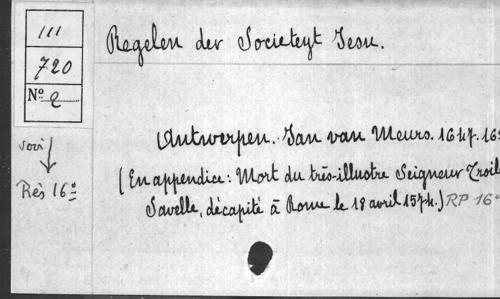 III
720
Nº 2
Regelen der Societeyt Jesu.
Antwerpen. Jan van Meurs. 1647. 16º
(En appendice: Mort du très-illustre Seigneur Troile
Savelle, décapité à Rome le 18 avril 1574.) RP 16º
voir
Rés 16º